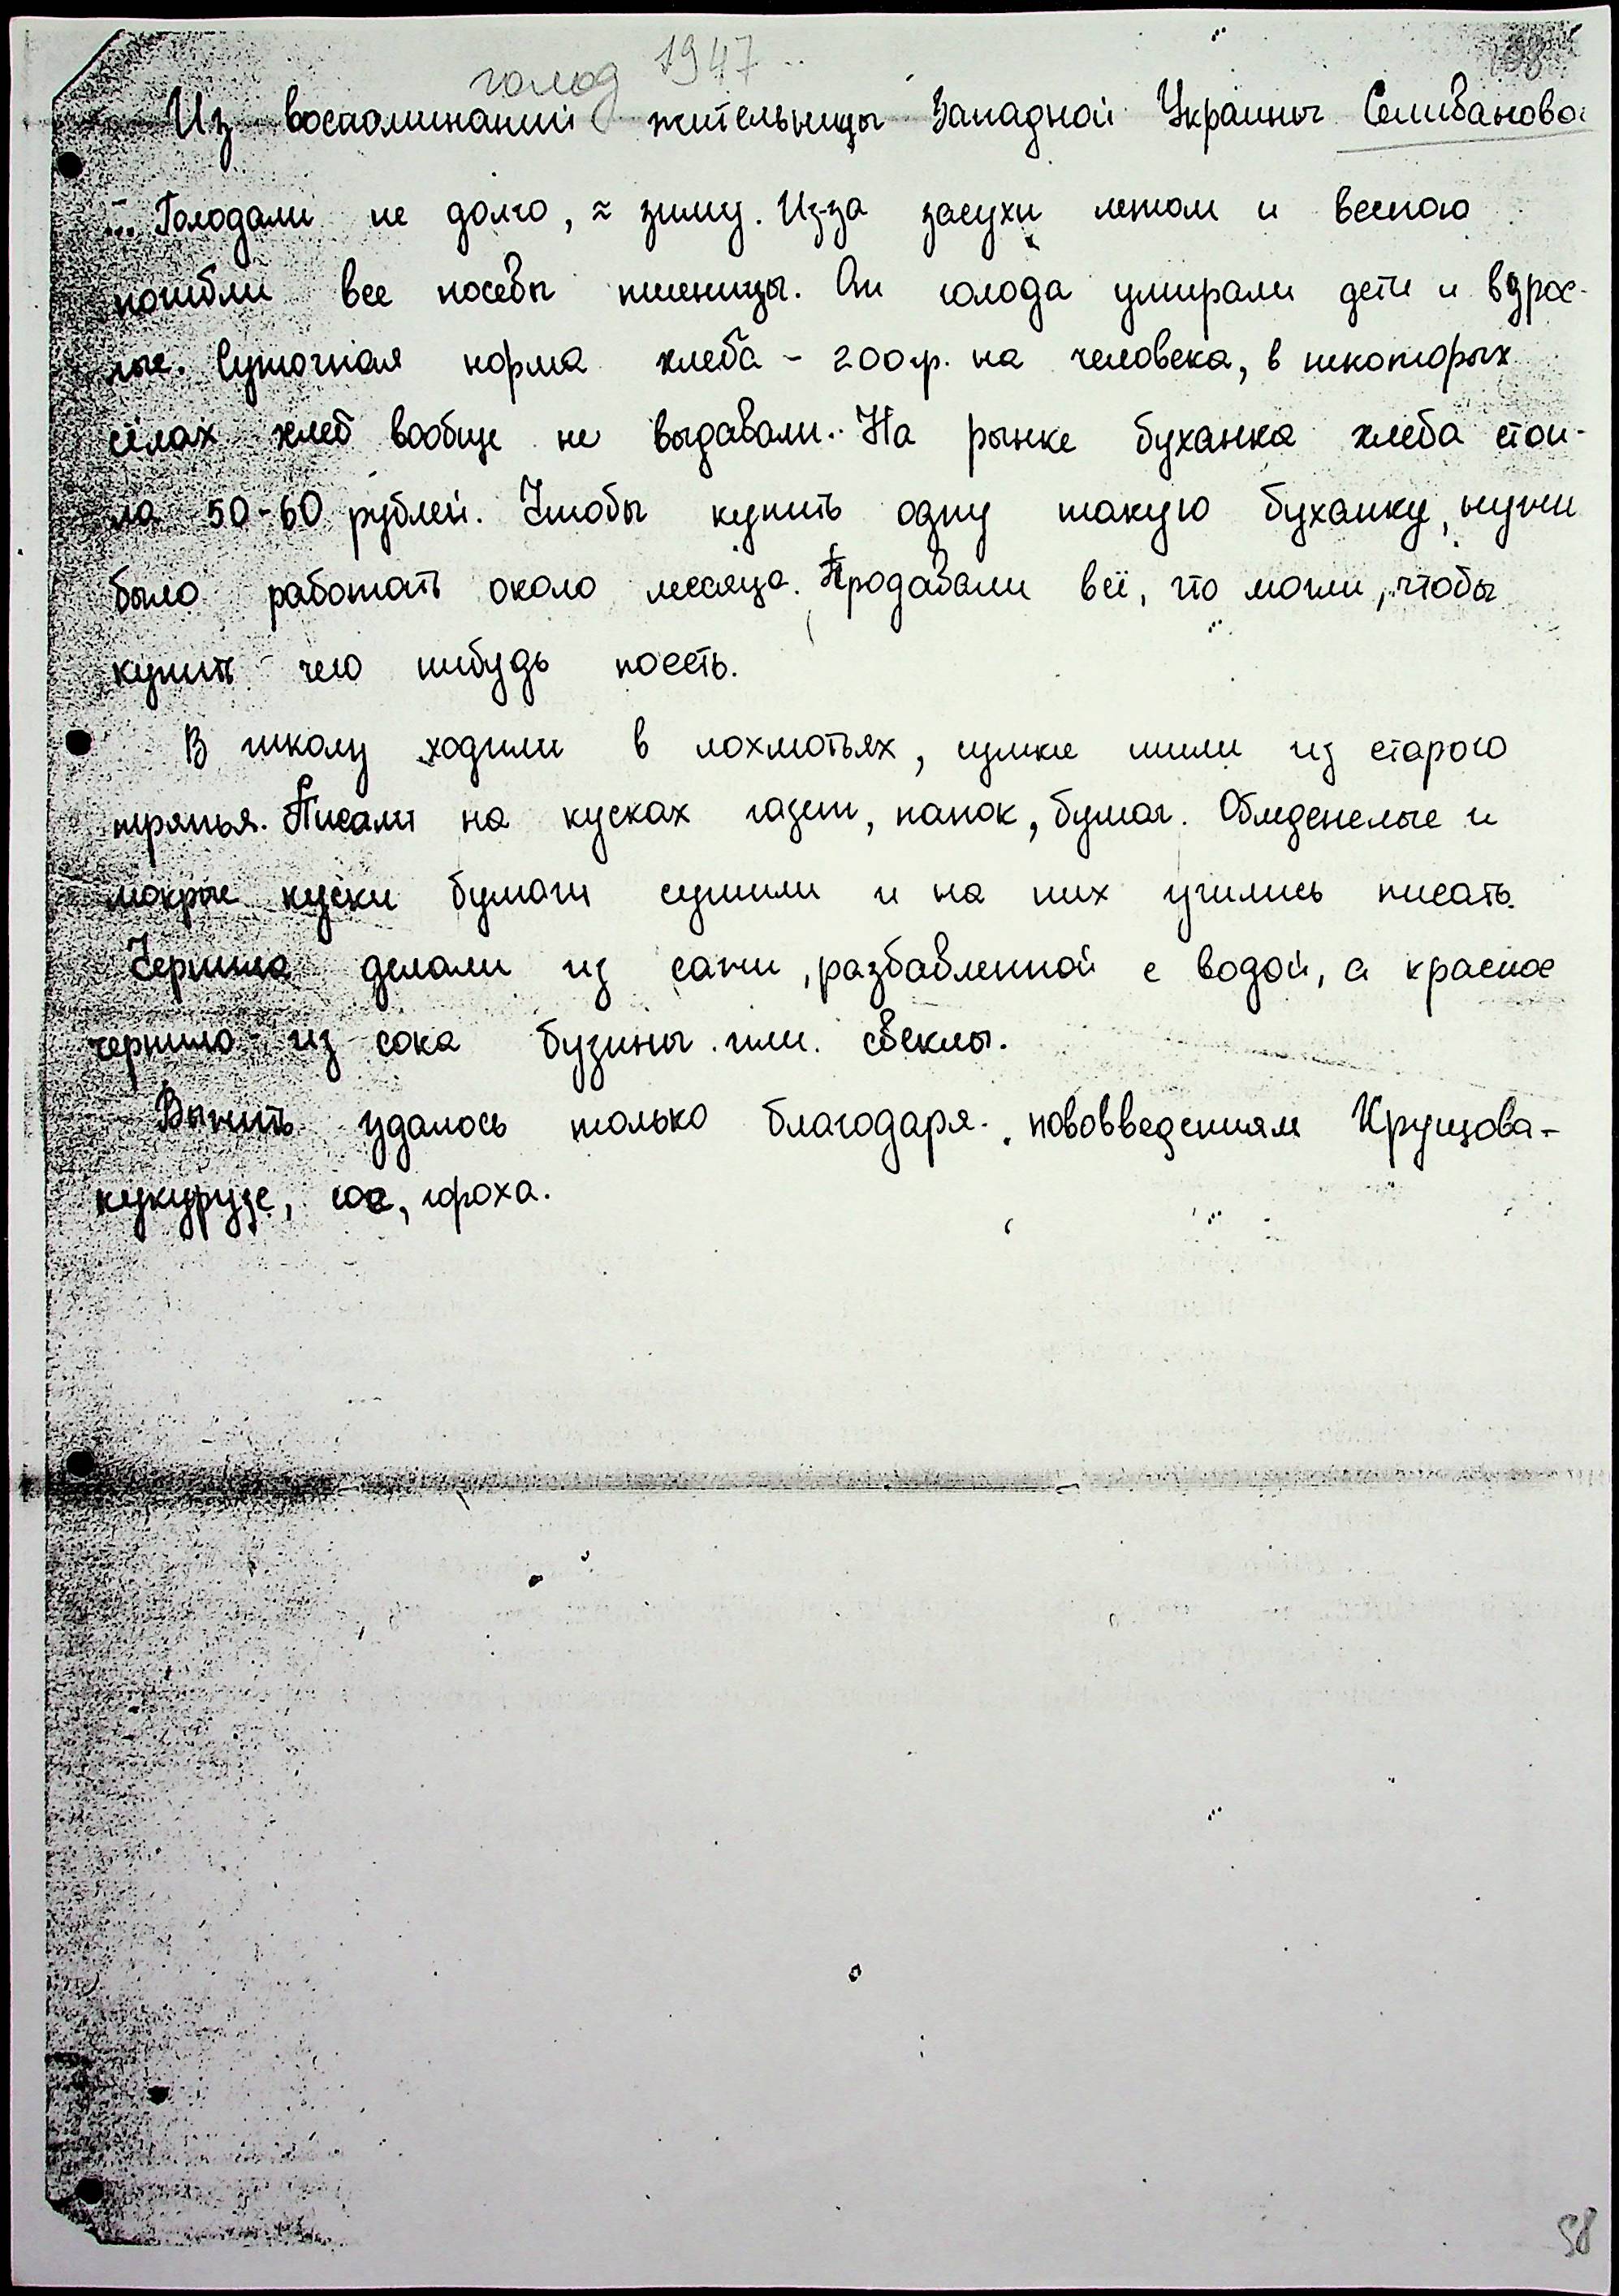 голод 1947
Из воспоминаний жительницы Западной Украины Селиваново
... Голодали не долго, ≈ зиму. Из-за засухи летом и весною
погибли все посевы пшеницы. От голода умирали дети и вдрос-
лые. Суточная норма хлеба - 200 гр. на человека, в некоторых
сёлах хлеб вообще не выдавали. На рынке буханка хлеба стои-
ла 50-60 рублей. Чтобы купить одну такую буханку, нужн
было работать около месяца. Продавали всё, что могли, чтобы
купить чего нибудь поесть.
В школу ходили в лохмотьях, сумки шили из старого
тряпья. Писали на кусках газет, папок, бумаг. Обледенелые и
мокрые куски бумаги сушили и на них учились писать.
Чернила делали из сажи, разбавленной с водой, а красное
чернило - из сока бузины или свеклы.
Выжить удалось только благодаря нововведениям Хрущова -
кукурузе, сое, гороха.
58